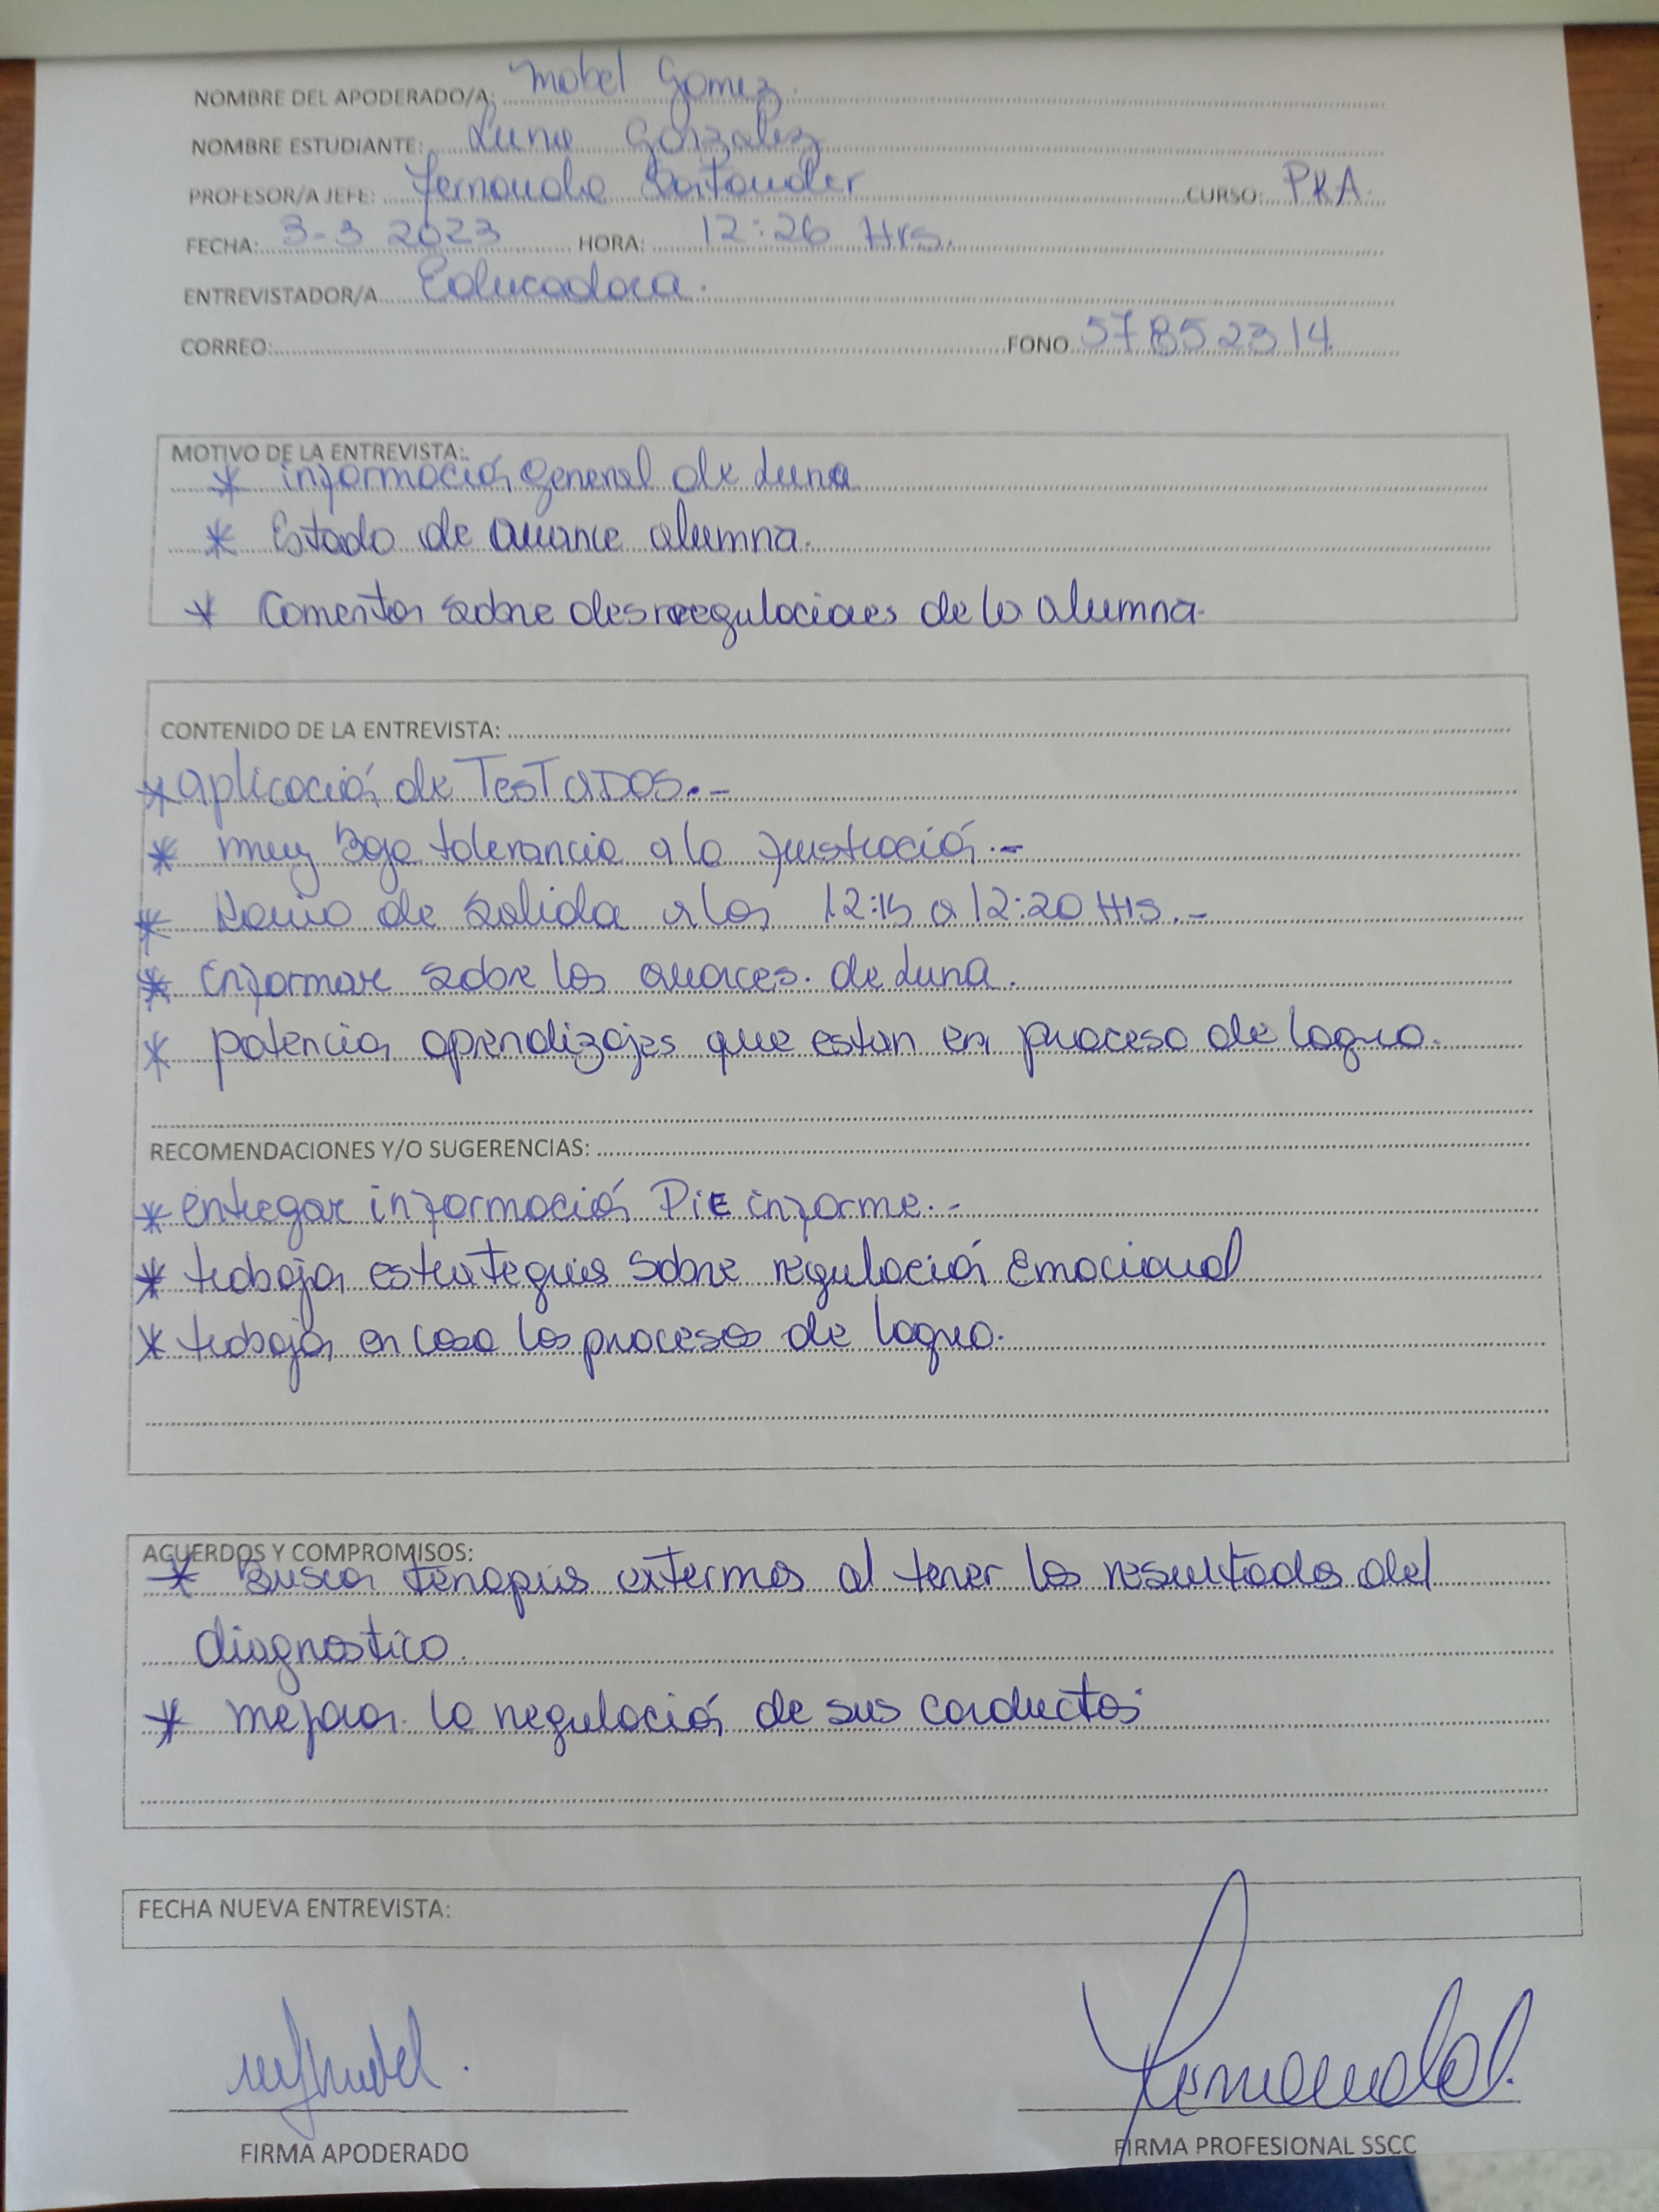 NOMBRE DEL APODERADO/A: Mabel Gomez.
NOMBRE ESTUDIANTE: Luna Gonzalez
PROFESOR/A JEFE: Fernanda Santander CURSO: PKA.
FECHA: 3-3 2023 HORA: 12:26 Hrs.
ENTREVISTADOR/A Educadora.
CORREO: FONO 57852314
MOTIVO DE LA ENTREVISTA:
* información general de Luna
* Estado de avance alumna.
* Comentar sobre desrregulaciones de la alumna.
CONTENIDO DE LA ENTREVISTA:
* aplicación de Test ADOS.-
* muy Baja tolerancia a la frustración.-
* de salida a las 12:15 a 12:20 Hrs.-
* informar sobre los avances de Luna.
* potenciar aprendizajes que estan en proceso de logro.
RECOMENDACIONES Y/O SUGERENCIAS:
* entregar información PiE informe.-
* trabajar estrategias sobre regulación Emocional
* trabajar en casa los procesos de logro.
ACUERDOS Y COMPROMISOS:
* Buscar terapias externas al tener los resultados del
diagnostico.
* mejorar la regulación de sus conductas
FECHA NUEVA ENTREVISTA:
FIRMA APODERADO FIRMA PROFESIONAL SSCC